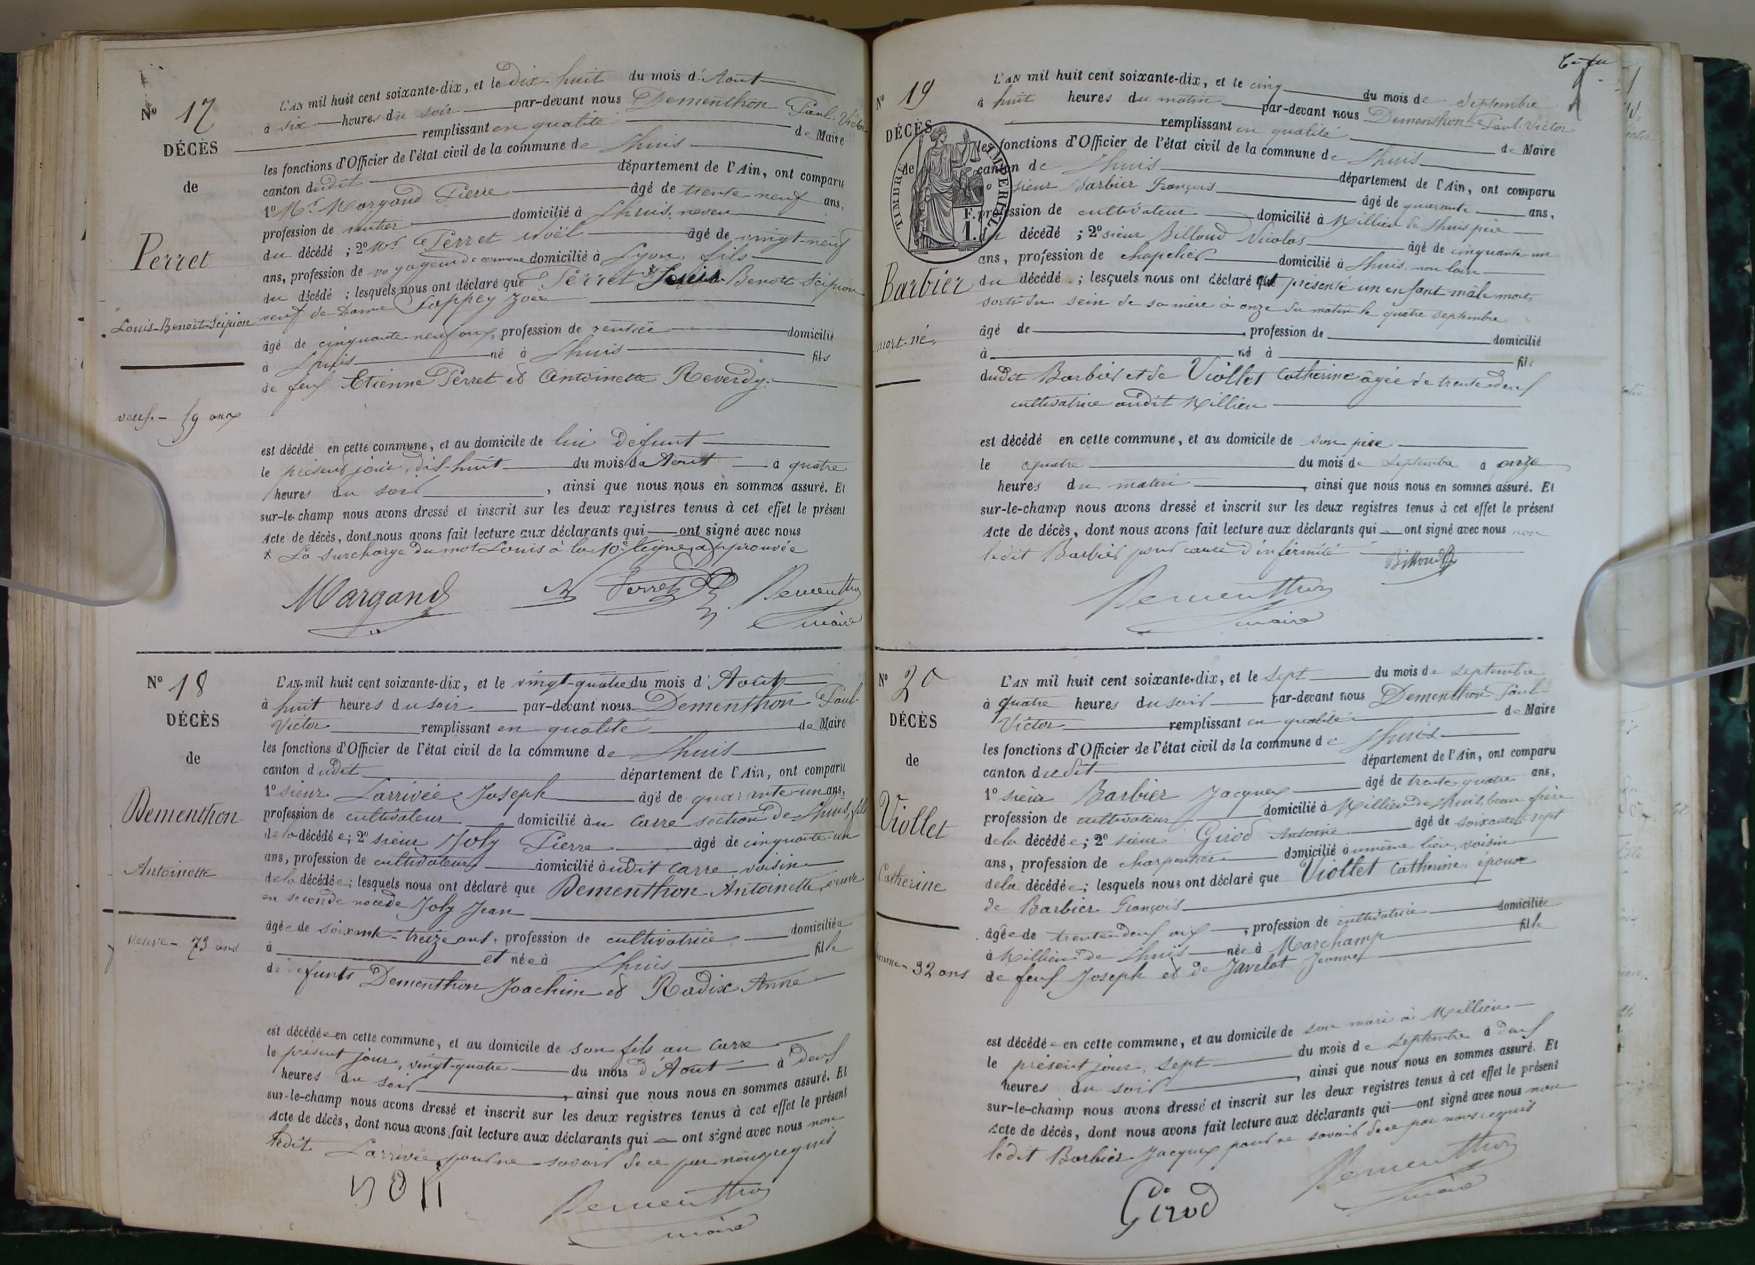 Nº 17
DÉCÈS
de
Perret
Louis-Benoit-Scipion
veuf - 59 ans
L'AN mil huit cent soixante-dix, et le dix huit du mois d'Aout
à six heures du soir par-devant nous Dementhon Paul Victor
remplissant en qualité de Maire
les fonctions d'Officier de l'état civil de la commune de Lhuis
canton dudit département de l'Ain, ont comparu
1º Mr Margand Pierre âgé de trente neuf ans,
profession de domicilié à Lhuis, neveu
du décédé ; 2º Mr Perret Noël âgé de vingt neuf
ans, profession de voyageur de commerce domicilié à Lyon, fils
du décédé ; lesquels nous ont déclaré que Perret * Louis Benoit Scipion
veuf de Dame Pappey Zoé
âgé de cinquante neuf ans, profession de rentier domicilié
à Lhuis né à Lhuis fils
de feu Etienne Perret et Antoinette Reverdy.
est décédé en cette commune, et au domicile de lui défunt
le présent jour, dix-huit du mois da Aout à quatre
heures du soir, ainsi que nous nous en sommes assuré. Et
sur-le-champ nous avons dressé et inscrit sur les deux registres tenus à cet effet le présent
Acte de décès, dont nous avons fait lecture aux déclarants qui ont signé avec nous
* La surcharge du mot Louis à la 10e ligne approuvée
Margand N Perret Dementhon
maire
Nº 18
DÉCÈS
de
Dementhon
Antoinette
veuve - 73 ans
L'AN mil huit cent soixante-dix, et le vingt-quatre du mois d'Aout
à huit heures du soir par-devant nous Dementhon Paul
Victor remplissant en qualité de Maire
les fonctions d'Officier de l'état civil de la commune de Lhuis
canton dudit département de l'Ain, ont comparu
1º sieur Larrivée Joseph âgé de quarante un ans,
profession de cultivateur domicilié au Carre section de Lhuis, fils
de la décédée ; 2º sieur Joly Pierre âgé de cinquante un
ans, profession de cultivateur domicilié audit Carre voisin
de la décédée ; lesquels nous ont déclaré que Dementhon Antoinette, veuve
en seconde noce de Joly Jean
âgée de soixante-treize ans, profession de cultivatrice domiciliée
à et née à Lhuis fille
de défunts Dementhon Joachim et Radix Anne
est décédée en cette commune, et au domicile de son fils au Carre
le présent jour, vingt-quatre du mois d'Aout à deux
heures du soir, ainsi que nous nous en sommes assuré. Et
sur-le-champ nous avons dressé et inscrit sur les deux registres tenus à cet effet le présent
Acte de décès, dont nous avons fait lecture aux déclarants qui ont signé avec nous non
ledit Larrivée pour ne savoir de ce par nous requis
Dementhon
maire
Nº 19
DÉCÈS
de
Barbier
mort-né,
TIMBRE IMPERIAL
F.
1.
L'AN mil huit cent soixante-dix, et le cinq du mois de Septembre
à huit heures du matin par-devant nous Dementhon Paul-Victor
remplissant en qualité de Maire
les fonctions d'Officier de l'état civil de la commune de Lhuis
canton de Lhuis département de l'Ain, ont comparu
1º sieur Barbier François âgé de quarante ans,
profession de cultivateur domicilié à Millieu de Lhuis père
du décédé ; 2º sieur Billoud Nicolas âgé de cinquante un
ans, profession de chapelier domicilié à Lhuis
du décédé ; lesquels nous ont déclaré que présenté un enfant mâle mort,
sorti du sein de sa mère à onze du matin le quatre septembre
âgé de , profession de domicilié
à né à fils
dudit Barbier et de Viollet Catherine âgée de trente deux
cultivatrice audit Millieu
est décédé en cette commune, et au domicile de son père
le quatre du mois de Septembre à onze
heures du matin, ainsi que nous nous en sommes assuré. Et
sur-le-champ nous avons dressé et inscrit sur les deux registres tenus à cet effet le présent
Acte de décès, dont nous avons fait lecture aux déclarants qui ont signé avec nous non
ledit Barbier pour cause d'infirmité
Billoud
Dementhon
maire
Nº 20
DÉCÈS
de
Viollet
Catherine
32 ans
L'AN mil huit cent soixante-dix, et le Sept du mois de septembre
à quatre heures du soir par-devant nous Dementhon Paul
Victor remplissant en qualité de Maire
les fonctions d'Officier de l'état civil de la commune de Lhuis
canton dudit département de l'Ain, ont comparu
1º sieur Barbier Jacques âgé de trente quatre ans,
profession de cultivateur domicilié à Millieu de Lhuis, beau frère
de la décédée ; 2º sieur Girod Antoine âgé de soixante sept
ans, profession de charpentier domicilié au même lieu, voisin
de la décédée ; lesquels nous ont déclaré que Viollet Catherine, épouse
de Barbier François
âgée de trente deux ans, profession de cultivatrice domiciliée
à Millieu de Lhuis née à Marchamp fille
de feu Joseph et de Javelot Jeanne
est décédée en cette commune, et au domicile de son mari à Millieu
le présent jour, Sept du mois de Septembre à deux
heures du soir, ainsi que nous nous en sommes assuré. Et
sur-le-champ nous avons dressé et inscrit sur les deux registres tenus à cet effet le présent
Acte de décès, dont nous avons fait lecture aux déclarants qui ont signé avec nous non
ledit Barbier Jacques pour ne savoir de ce par nous requis
Girod
Dementhon
maire